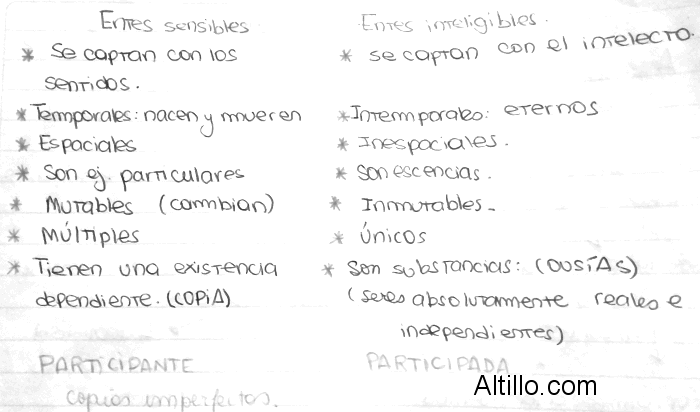 Entes sensibles
* Se captan con los
sentidos.
* Temporales: nacen y mueren
* Espaciales
* Son ej. particulares
* Mutables (cambian)
* Múltiples
* Tienen una existencia
dependiente. (COPIA)
PARTICIPANTE
copias imperfectas.
Entes inteligibles.
* se captan con el intelecto.
* Intemporales: eternos
* Inespaciales.
* Son escencias.
* Inmutables.
* Únicos
* Son substancias: (OUSÍAS)
(seres absolutamente reales e
independientes)
PARTICIPADA
Altillo.com